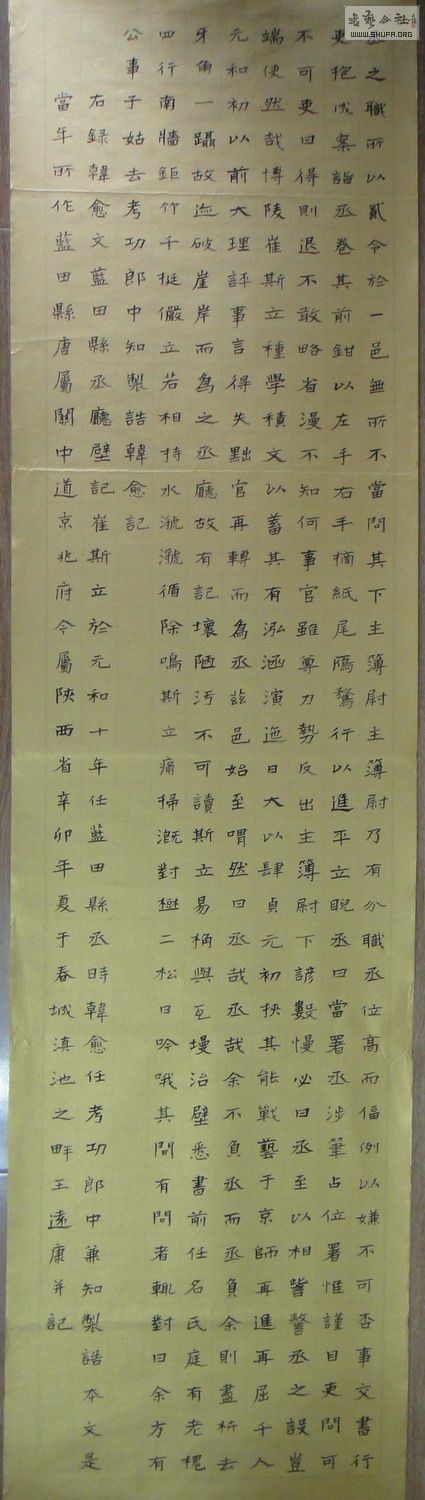 丞之職所以貳令於一邑無所不當問其下主簿尉主簿尉乃有分職丞位高而偪例以嫌不可否事文書行
吏抱成案詣丞卷其前鉗以左手右手摘紙尾鴈鶩行以進平立睨丞曰當署丞涉筆占位署惟謹目吏問可
不可吏曰得則退不敢略省漫不知何事官雖尊力勢反出主簿尉下諺數慢必曰丞至以相訾謷丞之設豈
端使然哉博陵崔斯立種學積文以蓄其有泓涵演迤日大以肆貞元初挾其能戰藝于京師再進再屈千人
元和初以前大理評事言得失黜官再轉而為丞茲邑始至喟然曰丞哉丞哉余不負丞而丞負余則盡枿去
牙角一躡故迹破崖岸而為之丞廳故有記壞陋汚不可讀斯立易桷與瓦墁治壁悉書前任名氏庭有老槐
四行南牆鉅竹千挺儼立若相持水㶁㶁循除鳴斯立痛掃漑對樹二松日吟哦其間有問者輒對曰余方有
公事子姑去考功郎中知製誥韓愈記
右錄韓愈文藍田縣丞廳壁記崔斯立於元和十年任藍田縣丞時韓愈任考功郎中兼知製誥本文是
當年所作藍田縣唐屬關中道京兆府今屬陝西省辛卯年夏于春城滇池之畔王遠康并記
书艺公社
WWW.SHUFA.ORG